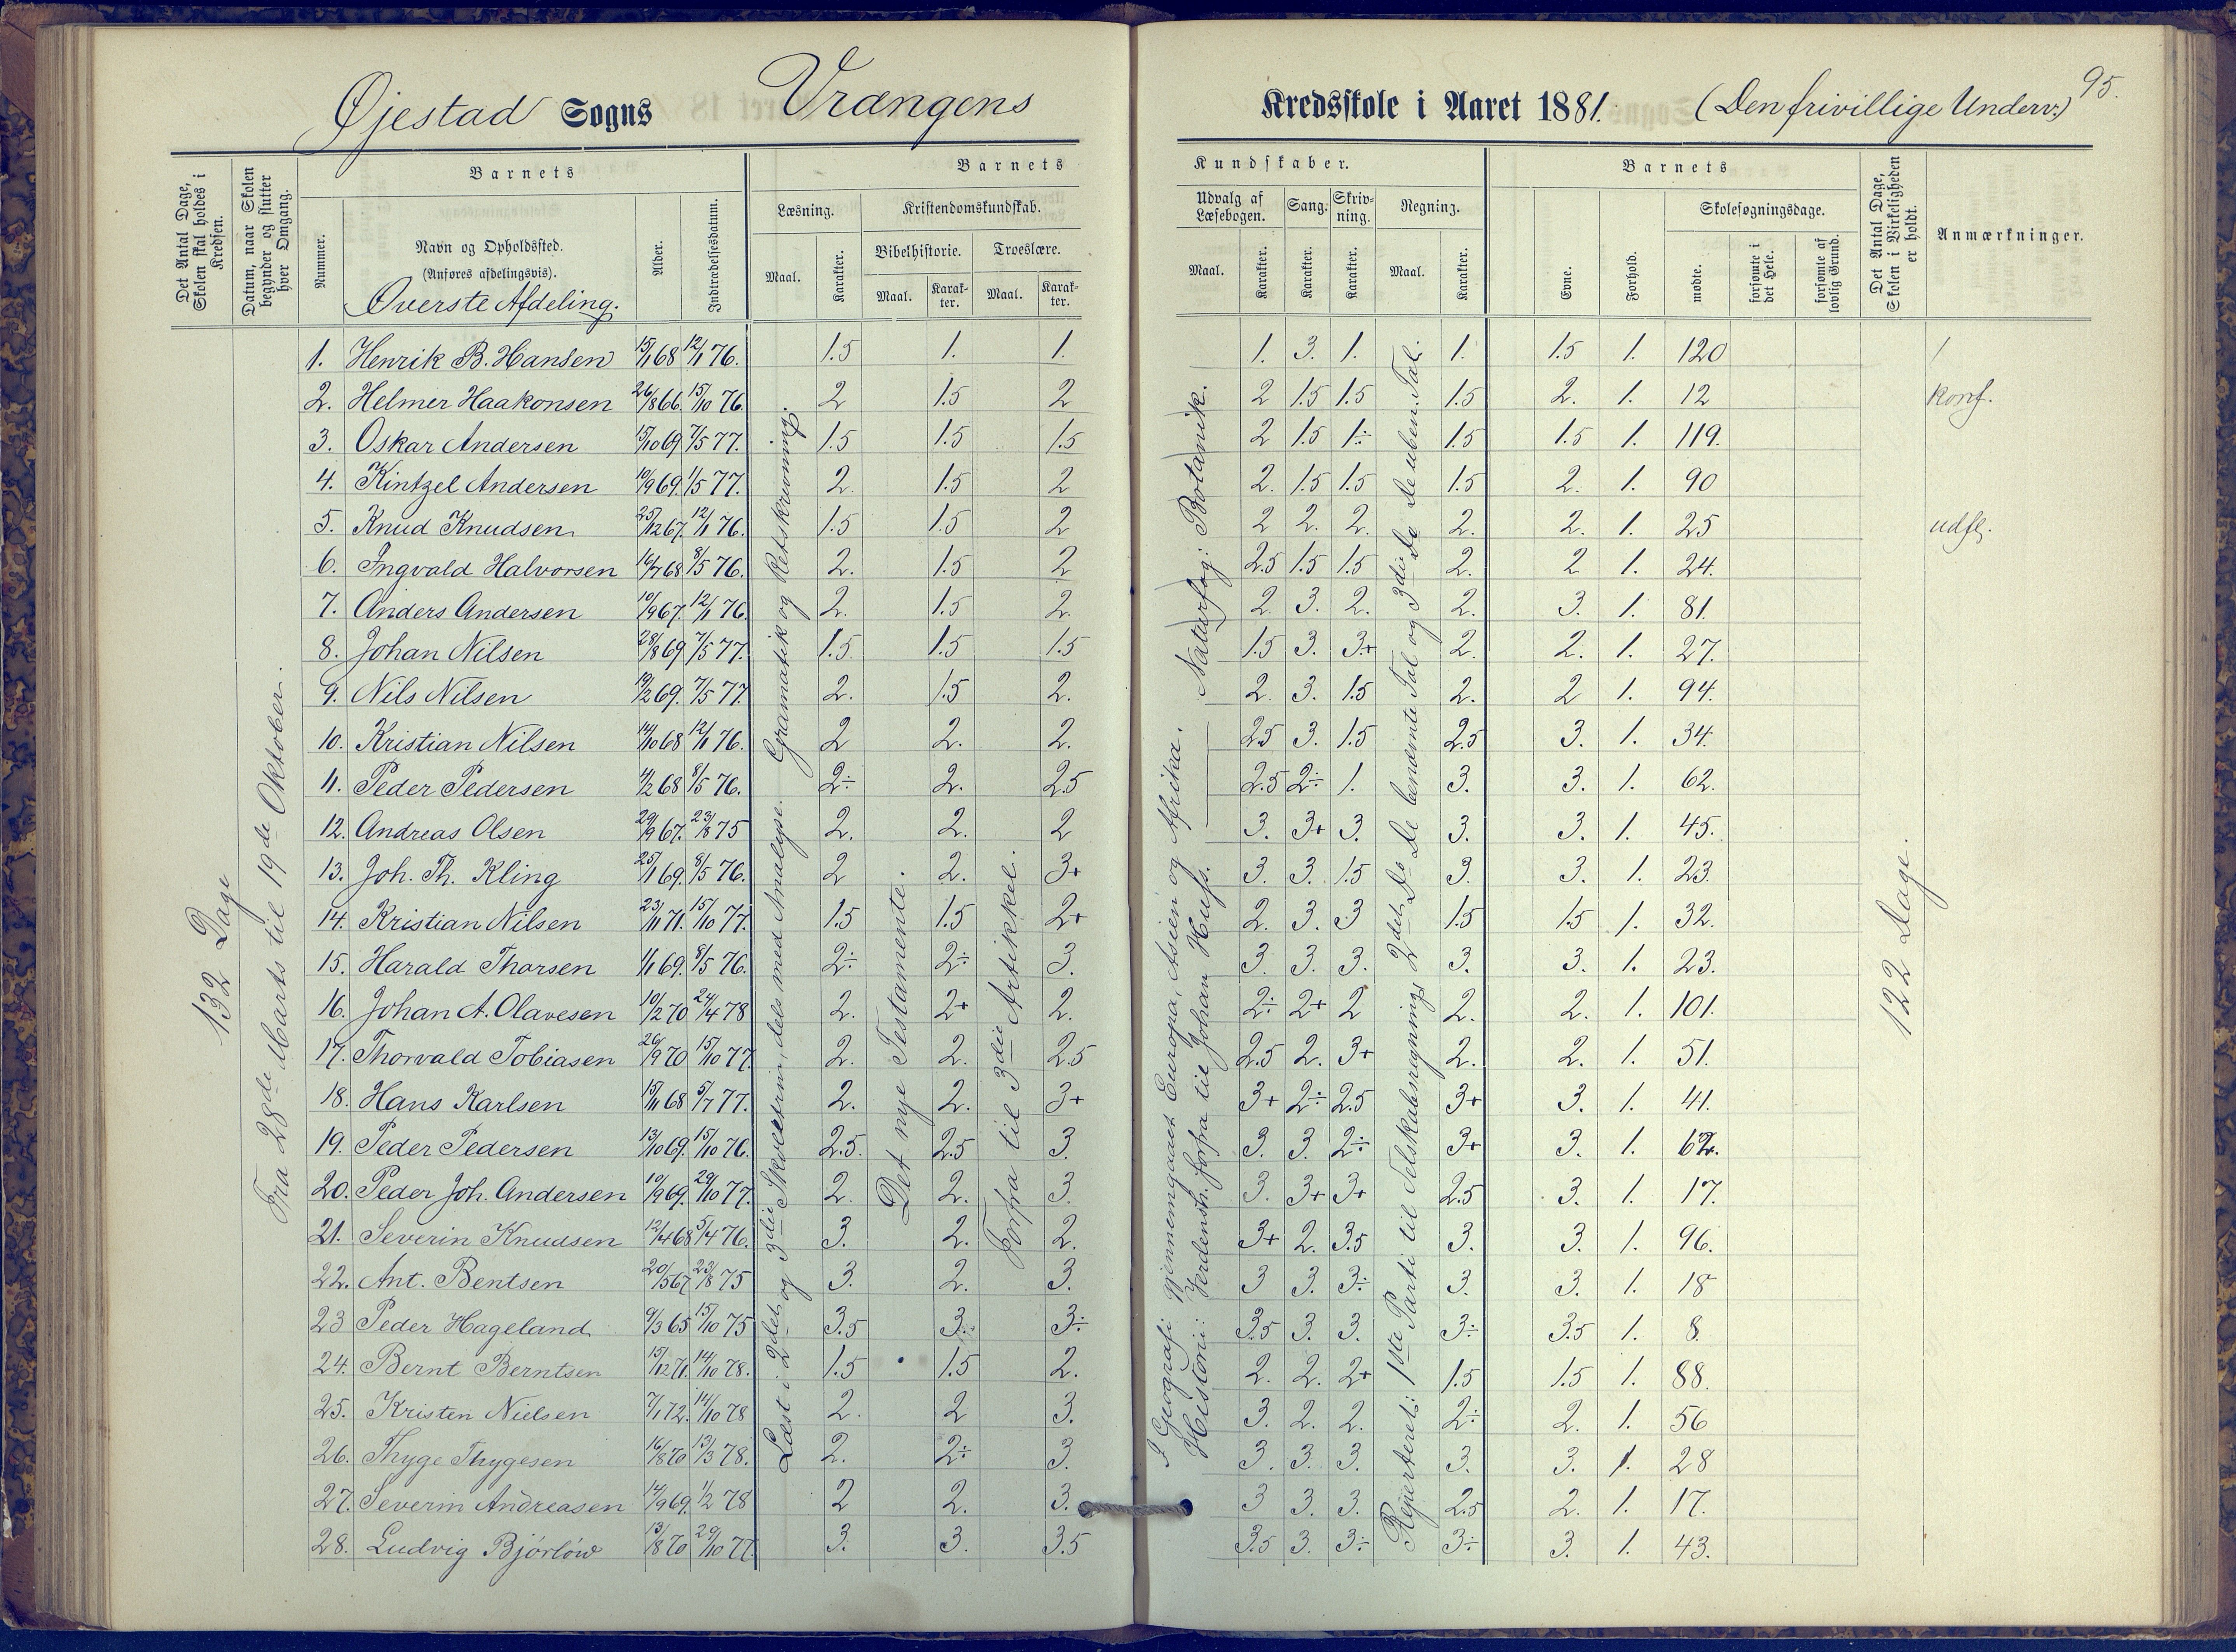 95.
Øjestad Sogns Vrangens Kredsskole i Aaret 1881. (Den frivillige Underv.)
Det Antal Dage, Skolen skal holdes i Kredsen.
Datum, naar Skolen begynder og slutter hver Omgang.
Barnets
Nummer.
Navn og Opholdssted.
(Anføres afdelingsvis).
Øverste Afdeling.
Alder.
Indtrædelsesdatum.
Barnets Kundskaber.
Læsning. Kristendomskundskab. Udvalg af Læsebogen. Sang. Skrivning. Regning.
Bibelhistorie. Troeslære.
Maal. Karakter. Maal. Karakter. Maal. Karakter. Maal. Karakter. Karakter. Karakter. Maal. Karakter.
Barnets
Evne. Forhold. Skolesøgningsdage.
mødte. forsømte i det Hele. forsømte af lovlig Grund.
Det Antal Dage, Skolen i Virkeligheden er holdt.
Anmærkninger.
132 Dage
Fra 28de Marts til 19de Oktober.
Læst i 2det og 3die Skoletrin, dels med Analyse. Gramatik og Retskrivning.
Det nye Testamente.
Forfra til 3die Artikkel.
I Geografi gjennemgaaet Europa, Asien og Afrika.
Historie: Verdenshi. forfra til Johan Huss. Naturfag: Botanik.
Repeteret: 1ste Parti til Selskabsregning 2det Do De benævnte Tal og 3die Do De uben. Tal.
122 Dage.
1. Henrik B. Hansen 15/1 68 12/1 76. 1.5 1. 1. 1. 3. 1. 1. 1.5 1. 120
2. Helmer Haakonsen 26/8 66. 15/10 76. 2 1.5 2 2 1.5 1.5 1.5 2. 1. 12 konf.
3. Oskar Andersen 15/10 69 7/5 77. 1.5 1.5 1.5 2 1.5 1÷ 1.5 1.5 1. 119.
4. Kintzel Andersen 10/9 69. 1/5 77. 2. 1.5 2 2. 1.5 1.5 1.5 2. 1. 90
5. Knud Knudsen 25/12 67. 12/1 76. 1.5 1.5 2 2 2. 2. 2. 2. 1. 25 udfl.
6. Ingvald Halvorsen 16/7 68 8/5 76. 2. 1.5 2 2.5 1.5 1.5 2. 2 1. 24.
7. Anders Andersen 10/9 67. 12/1 76. 2. 1.5 2. 2. 3. 2. 2. 3. 1. 81.
8. Johan Nilsen 28/8 69 7/5 77. 1.5. 1.5 1.5 1.5 3. 3+ 2. 2. 1. 27.
9. Nils Nilsen 19/2 69. 7/5 77. 2. 1.5 2. 2. 3. 1.5 2. 2 1. 94.
10. Kristian Nilsen 14/10 68 12/1 76. 2 2. 2. 2.5 3. 1.5 2.5 3. 1. 34.
11. Peder Pedersen 4/2 68 8/5 76. 2÷ 2. 2.5 2.5 2÷ 1. 3. 3. 1. 62.
12. Andreas Olsen 29/9 67. 23/8 75 2. 2. 2 3. 3+ 3. 3. 3. 1. 45.
13. Joh. Th. Kling 25/1 69. 8/5 76. 2 2. 3+ 3. 3. 1.5 3. 3. 1. 23.
14. Kristian Nilsen 23/11 71. 15/10 77. 1.5 1.5 2+ 2. 3. 3 1.5 1.5 1. 32.
15. Harald Thorsen 1/1 69. 8/5 76. 2÷ 2÷ 3. 3. 3. 3. 3. 3. 1. 23.
16. Johan A. Olavesen 10/2 70 24/4 78 2. 2+ 2. 2÷ 2+ 2 2. 2. 1. 101.
17. Thorvald Tobiasen 26/9 70 15/10 77. 2. 2. 2.5 2.5 2. 3+ 2. 2. 1. 51.
18. Hans Karlsen 15/11 68 5/7 77. 2. 2. 3+ 3+ 2÷ 2.5 3+ 3. 1. 41.
19. Peder Pedersen 13/10 69. 15/10 76. 2.5. 2.5 3. 3. 3. 2÷ 3+ 3. 1. 62.
20. Peder Joh. Andersen 10/9 69. 29/10 77. 2. 2. 3. 3. 3+ 3+ 2.5 3. 1. 17.
21. Severin Knudsen 12/4 68 5/4 76. 3. 2. 2. 3+ 2. 3.5 3. 3. 1. 96.
22. Ant. Bentsen 20/5 67 23/8 75 3. 2. 3. 3 3. 3÷ 3. 3. 1. 18
23 Peder Hageland 9/3 65 15/10 75 3.5 3. 3÷ 3.5 3. 3. 3÷ 3.5 1. 8.
24. Bernt Berntsen 15/12 71. 14/10 78. 1.5 1.5 2. 2. 2. 2+ 1.5 1.5 1. 88.
25. Kristen Nielsen 7/1 72. 14/10 78 2. 2 3. 3. 2. 2. 2÷ 2. 1. 56
26. Thyge Thygesen 16/8 70 13/3 78. 2. 2÷ 3. 3. 3. 3. 3. 3. 1. 28
27. Severin Andreasen 14/9 69. 1/2 78 2 2. 3. 3 3. 3. 2.5 2. 1. 17.
28. Ludvig Bjørløw 13/8 70 29/10 77. 3. 3. 3.5 3.5 3. 3÷ 3÷ 3. 1. 43.